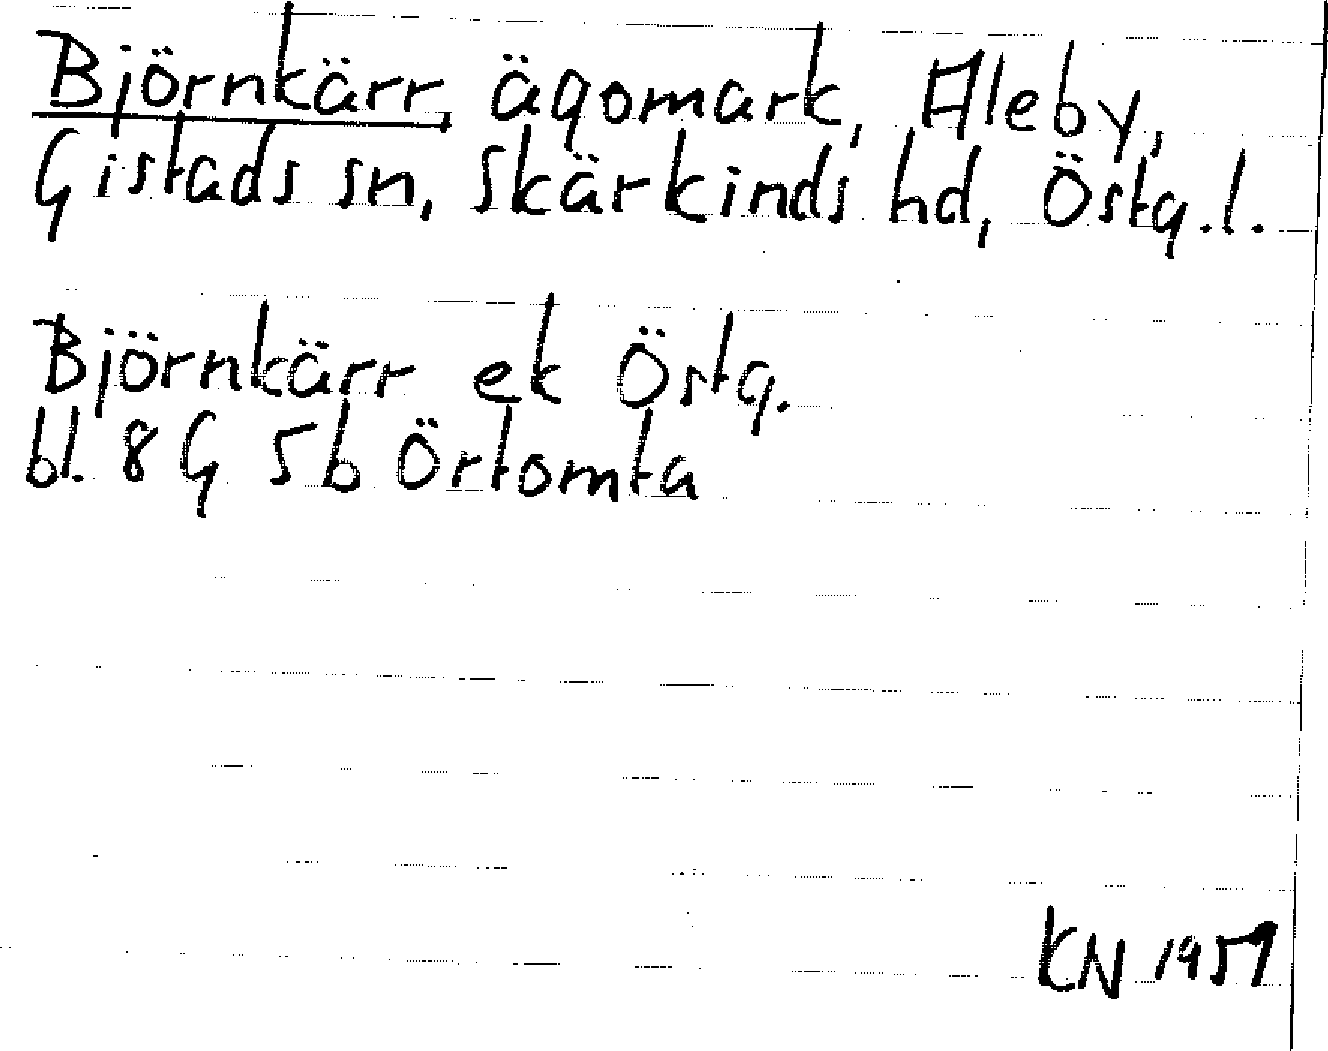 Björnkärr, ägomark, Åleby,
Gistads sn, Skärkinds hd, Östg.l.
Björnkärr ek Östg.
bl. 8 G 5b Örtomta
KN